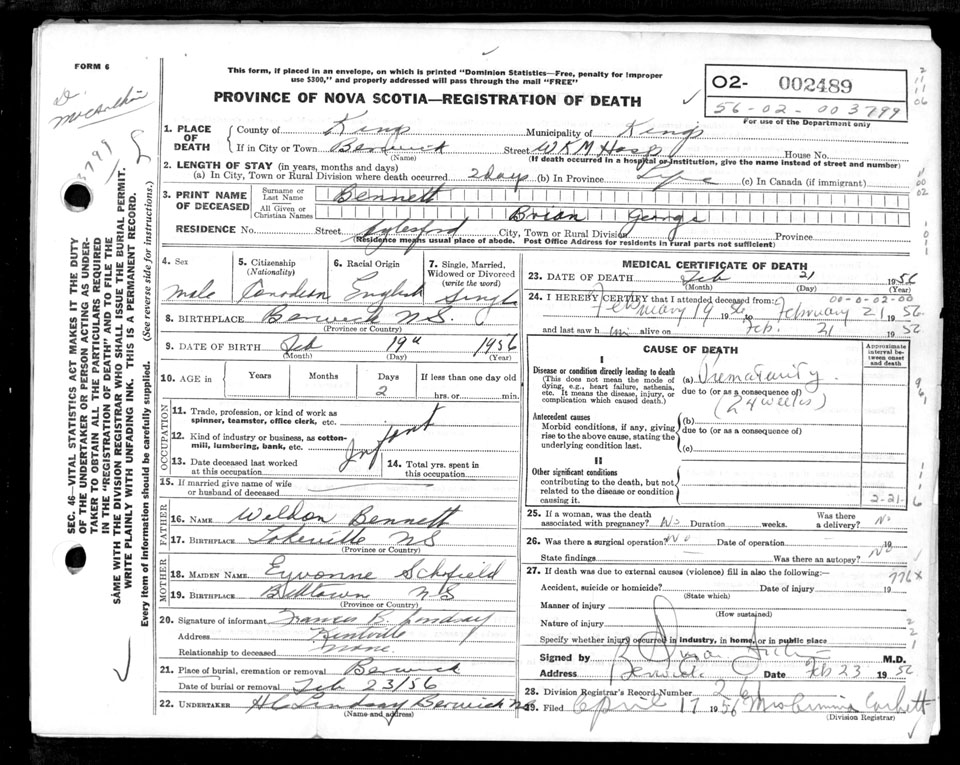 FORM 6
This form, if placed in an envelope, on which is printed "Dominion Statistics—Free, penalty for improper
use $300," and properly addressed will pass through the mail "FREE"
PROVINCE OF NOVA SCOTIA—REGISTRATION OF DEATH
02- 002489
56-02-003799
For use of the Department only
3791
SEC. 46—VITAL STATISTICS ACT MAKES IT THE DUTY
OF THE UNDERTAKER OR PERSON ACTING AS UNDER-
TAKER TO OBTAIN ALL THE PARTICULARS REQUIRED
IN THE "REGISTRATION OF DEATH" AND TO FILE THE
SAME WITH THE DIVISION REGISTRAR WHO SHALL ISSUE THE BURIAL PERMIT.
WRITE PLAINLY WITH UNFADING INK. THIS IS A PERMANENT RECORD.
Every item of information should be carefully supplied. (See reverse side for instructions.)
1. PLACE OF DEATH
County of Kings Municipality of Kings
If in City or Town Berwick Street WKM Hosp House No.
(Name) (If death occurred in a hospital or institution, give the name instead of street and number)
2. LENGTH OF STAY (in years, months and days)
(a) In City, Town or Rural Division where death occurred 2 days (b) In Province Life (c) In Canada (if immigrant)
3. PRINT NAME OF DECEASED
Surname or Last Name Bennett
All Given or Christian Names Brian George
RESIDENCE No. Street Aylesford City, Town or Rural Division Province
(Residence means usual place of abode. Post Office Address for residents in rural parts not sufficient)
4. Sex 5. Citizenship (Nationality) 6. Racial Origin 7. Single, Married, Widowed or Divorced (write the word)
Male Canadian English Single
8. BIRTHPLACE Berwick N.S.
(Province or Country)
9. DATE OF BIRTH Feb 19th 1956
(Month) (Day) (Year)
10. AGE in Years Months Days If less than one day old
2 hrs. or min.
OCCUPATION
11. Trade, profession, or kind of work as
spinner, teamster, office clerk, etc.
12. Kind of industry or business, as cotton-
mill, lumbering, bank, etc.
Infant
13. Date deceased last worked
at this occupation
14. Total yrs. spent in
this occupation
15. If married give name of wife
or husband of deceased
FATHER
16. NAME Weldon Bennett
17. BIRTHPLACE Lakeville NS
(Province or Country)
MOTHER
18. MAIDEN NAME Eyvonne Schofield
19. BIRTHPLACE Billtown NS
(Province or Country)
20. Signature of informant Frances B. Lindsay
Address Kentville
Relationship to deceased None
21. Place of burial, cremation or removal Berwick
Date of burial or removal Feb 23/56
22. UNDERTAKER H C Lindsay Berwick NS
(Name and address)
MEDICAL CERTIFICATE OF DEATH
23. DATE OF DEATH Feb 21 1956
(Month) (Day) (Year)
00-0-02-00
24. I HEREBY CERTIFY that I attended deceased from:
February 19 1956 to February 21 1956
and last saw him alive on Feb. 21 1956
CAUSE OF DEATH
Approximate interval between onset and death
I
Disease or condition directly leading to death
(This does not mean the mode of
dying, e.g., heart failure, asthenia,
etc. It means the disease, injury, or
complication which caused death.)
(a) Prematurity
due to (or as a consequence of)
(24 weeks)
Antecedent causes
Morbid conditions, if any, giving
rise to the above cause, stating the
underlying condition last.
(b)
due to (or as a consequence of)
(c)
II
Other significant conditions
contributing to the death, but not
related to the disease or condition
causing it.
2-21-6
25. If a woman, was the death
associated with pregnancy? No Duration weeks. Was there a delivery? No
26. Was there a surgical operation? No Date of operation 19
State findings Was there an autopsy? No
27. If death was due to external causes (violence) fill in also the following:—
776x
Accident, suicide or homicide? Date of injury 19
(State which)
Manner of injury
(How sustained)
Nature of injury
Specify whether injury occurred in industry, in home, or in public place
Signed by M.D.
Berwick Date Feb 23 1956
28. Division Registrar's Record Number 26
29. Filed April 17 1956 Mrs Corbett
(Division Registrar)